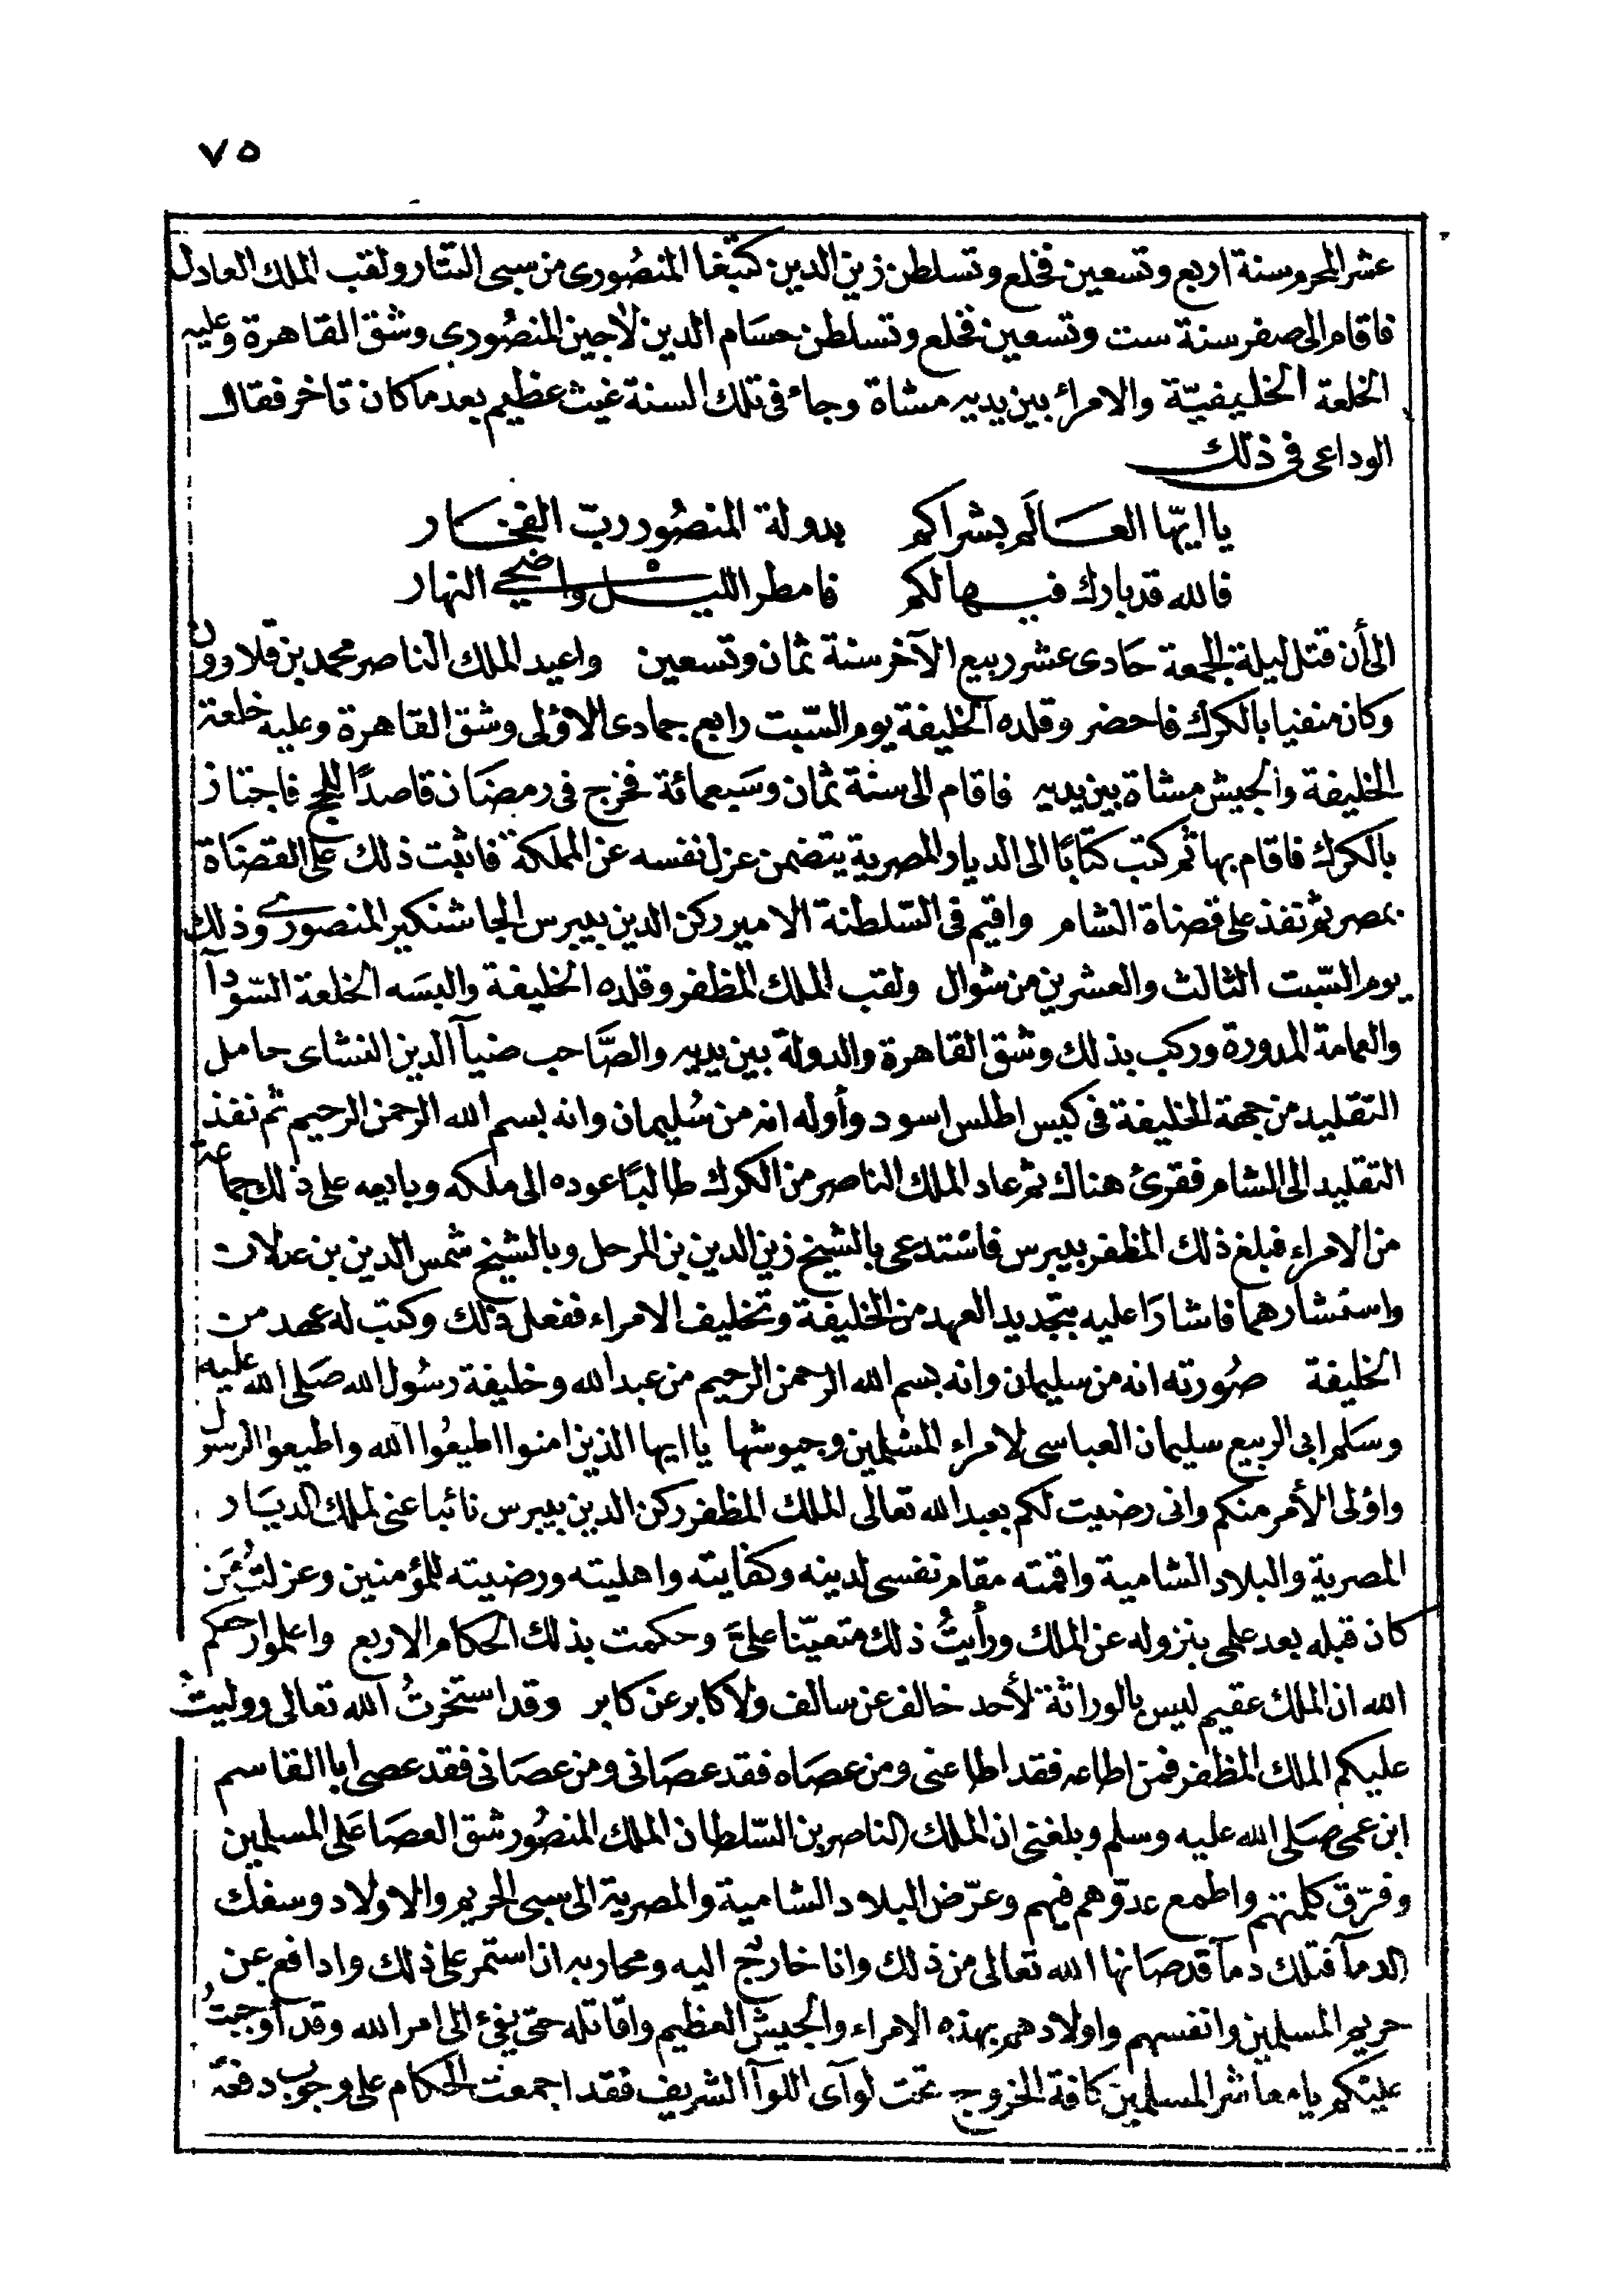 ٧٥
عشر المحرم سنة اربع وتسعين فخلع وتسلطن زين الدين كتبغا المنصُورى من سبى التتار ولقب الملك العادل
فاقام الى صفر سنة ست وتسعين فخلع وتسلطن حسَام الدين لاجين المنصُورى وشق القاهرة وعليه
الخلعة الخليفيّة والامرائ بين يديه مشاة وجائ فى تلك السنة غيث عظيم بعد ما كان تاخر فقال
الوداعى فى ذلك
يا ايّها العَالَم بشراكم بدولة المنصُور ربّ الفخَار
فالله قد بارك فيها لكم فامطر الليل واضحى النهار
الى أن قتل ليلة الجمعة حَادى عشر ربيع الآخر سنة ثمان وتسعين واعيد الملك الناصر محمد بن قلاوون
وكان منفيا بالكرك فاحضر وقلده الخليفة يوم السّبت رابع جمادى الاؤلى وشق القاهرة وعليه خلعة
الخليفة والجيش مشاة بين يديه فاقام الى سنة ثمان وسَبعمائة فخرج فى رمضَان قاصدًا للحج فاجتاز
بالكرك فاقام بها ثم كتب كتابًا الى الديار المصرية يتضمن عزل نفسه عن المملكة فاثبت ذلك على القضَاة
بمصر ثم نفذ على قضاة الشام واقيم فى السّلطنة الامير ركن الدين بيبرس الجاشنكير المنصورى وذلك
يوم السّبت الثالث والعشرين من شوال ولقب الملك المظفر وقلده الخليفة والبسَه الخلعة السّودآ
والعمامة المدورة وركب بذلك وشق القاهرة والدولة بين يديه والصَّاحب ضيآ الدين النشاى حامل
التقليد من جهة الخليفة فى كيس اطلس اسود وأوله انه من سُليمان وانه بسم الله الرحمن الرحيم ثم نفذ
التقليد الى الشام فقرئ هناك ثم عاد الملك الناصر من الكرك طالبًا عوده الى ملكه وبايعه على ذلك جماعة
من الامراء فبلغ ذلك المظفر بيبرس فاستدعى بالشيخ زين الدين بن المرحل وبالشيخ شمس الدين بن عدلان
واستشارهما فاشارَا عليه بتجديد العهد من الخليفة وتحليف الامراء ففعل ذلك وكتب له عهد من
الخليفة صُورته انه من سليمان وانه بسم الله الرحمن الرحيم من عبد الله وخليفة رسُول الله صَلى الله عليه
وسَلم ابى الربيع سليمان العباسى لامراء المسْلمين وجيوشها يا ايها الذين امنوا اطيعُوا الله واطيعوا الرسول
واؤلى الأمر منكم وانى رضيت لكم بعبد الله تعالى الملك المظفر ركن الدين بيبرس نائبا عنى لملك الديَار
المصرية والبلاد الشامية واقمته مقام نفسى لدينه وكفايته واهليته ورضيته للمؤمنين وعزلتُ مَن
كان قبله بعد علمى بنزوله عن الملك ورأيتُ ذلك متعيّنا علىَّ وحكمت بذلك الحكام الاربع واعلموا رحمكم
الله ان الملك عقيم ليس بالوراثة لأحد خالف عن سالف ولا كابر عن كابر وقد استخرتُ الله تعالى ووليتُ
عليكم الملك المظفر فمن اطاعه فقد اطاعنى ومن عصَاه فقد عصَانى ومن عصَانى فقد عصى ابا القاسم
ابن عمى صَلى الله عليه وسلم وبلغنى ان الملك الناصر بن السّلطان الملك المنصُور شق العصَا عَلى المسلمين
وفرّق كلمتهم واطمع عدوّهم فيهم وعرّض البلاد الشامية والمصرية الى سبى الحريم والاولاد وسفك
الدمآ فتلك دمآ قد صَانها الله تعالى من ذلك وانا خارج اليه ومحاربه ان استمر على ذلك وادافع عن
حريم المسلمين وانفسهم واولادهم بهذه الامراء والجيش العظيم واقاتله حتى يفئ الى امر الله وقد أوجبتُ
عليْكم يا معاشر المسلمين كافة الخروج تحت لوآى اللوآ الشريف فقد اجمعت الحكام على وجُوب دفعه